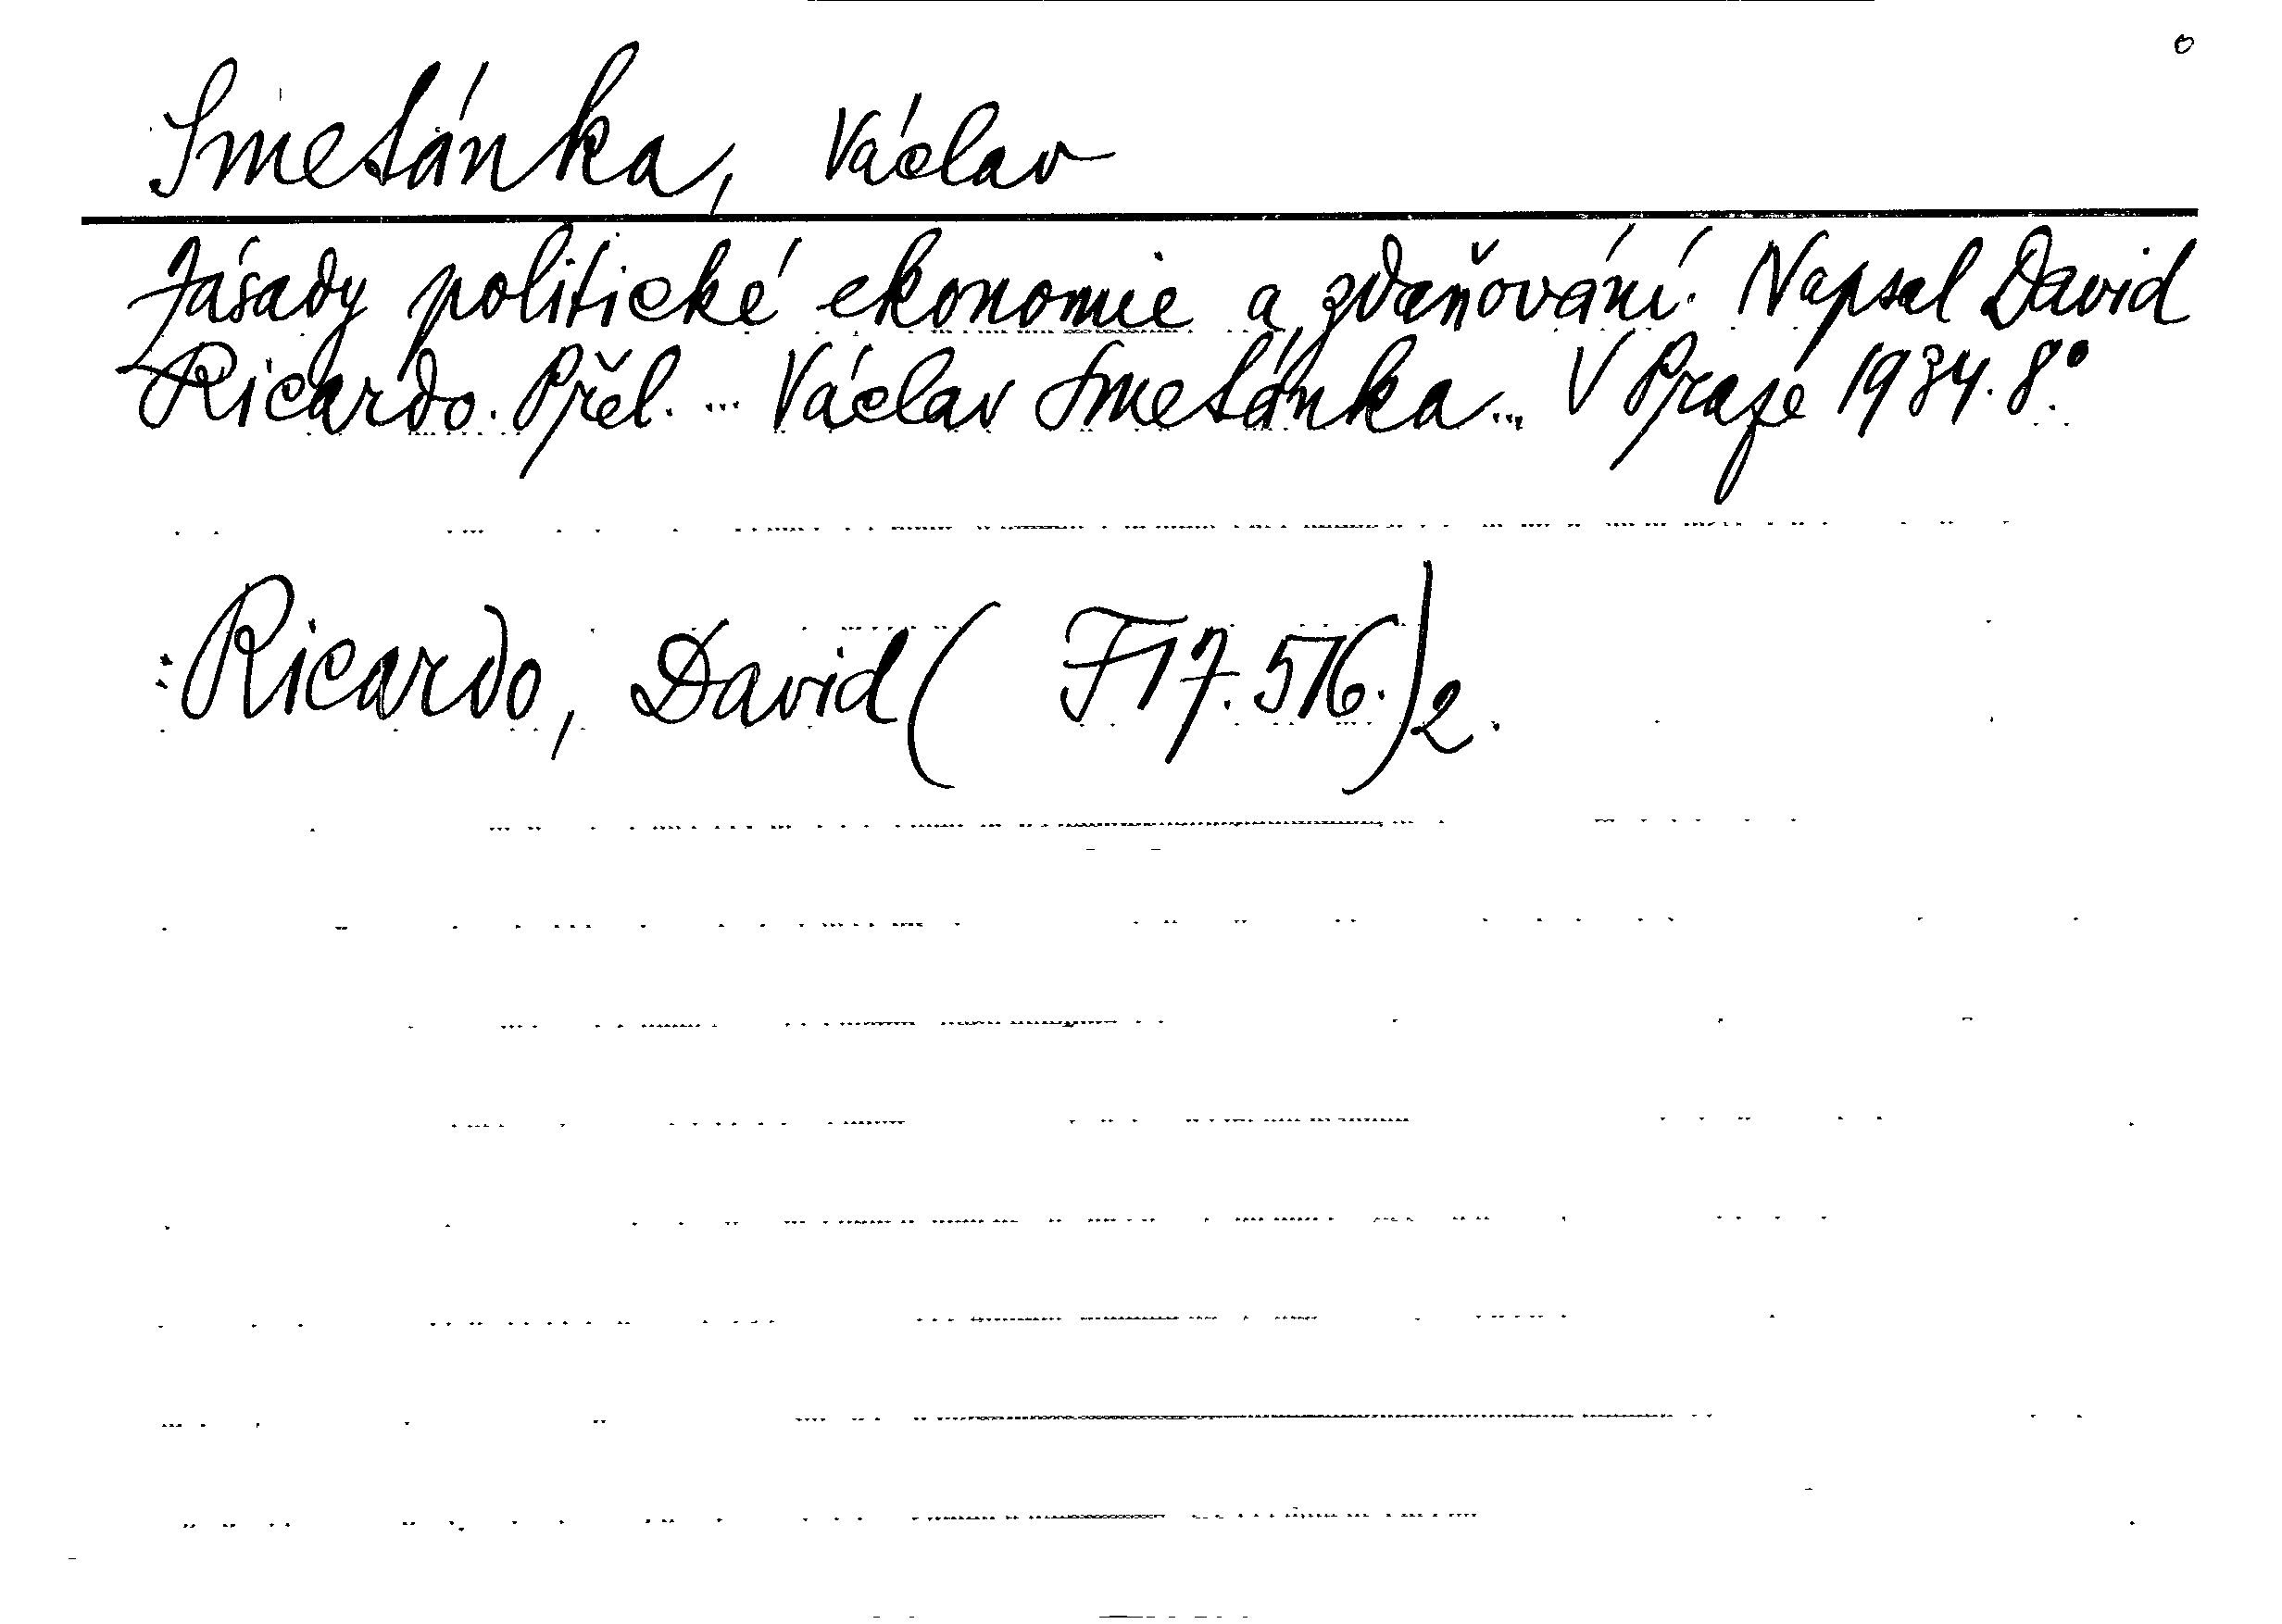 Smetánka, Václav
Zásady politické ekonomie a zdaňování. Napsal David
Ricardo. Přel. ... Václav Smetánka... V Praze 1934. 8°.
: Ricardo, David ( F 17.516.)2.